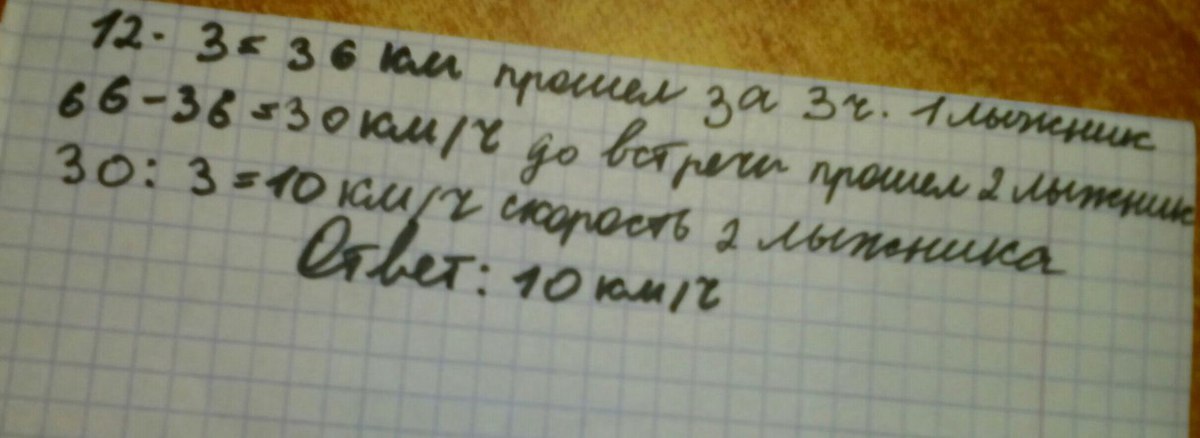 12· 3 = 36 км прошел за 3ч. 1 лыжник
66-36 = 30 км/ч до встречи прошел 2 лыжник
30: 3 = 10 км/ч скорость 2 лыжника
Ответ: 10 км/ч